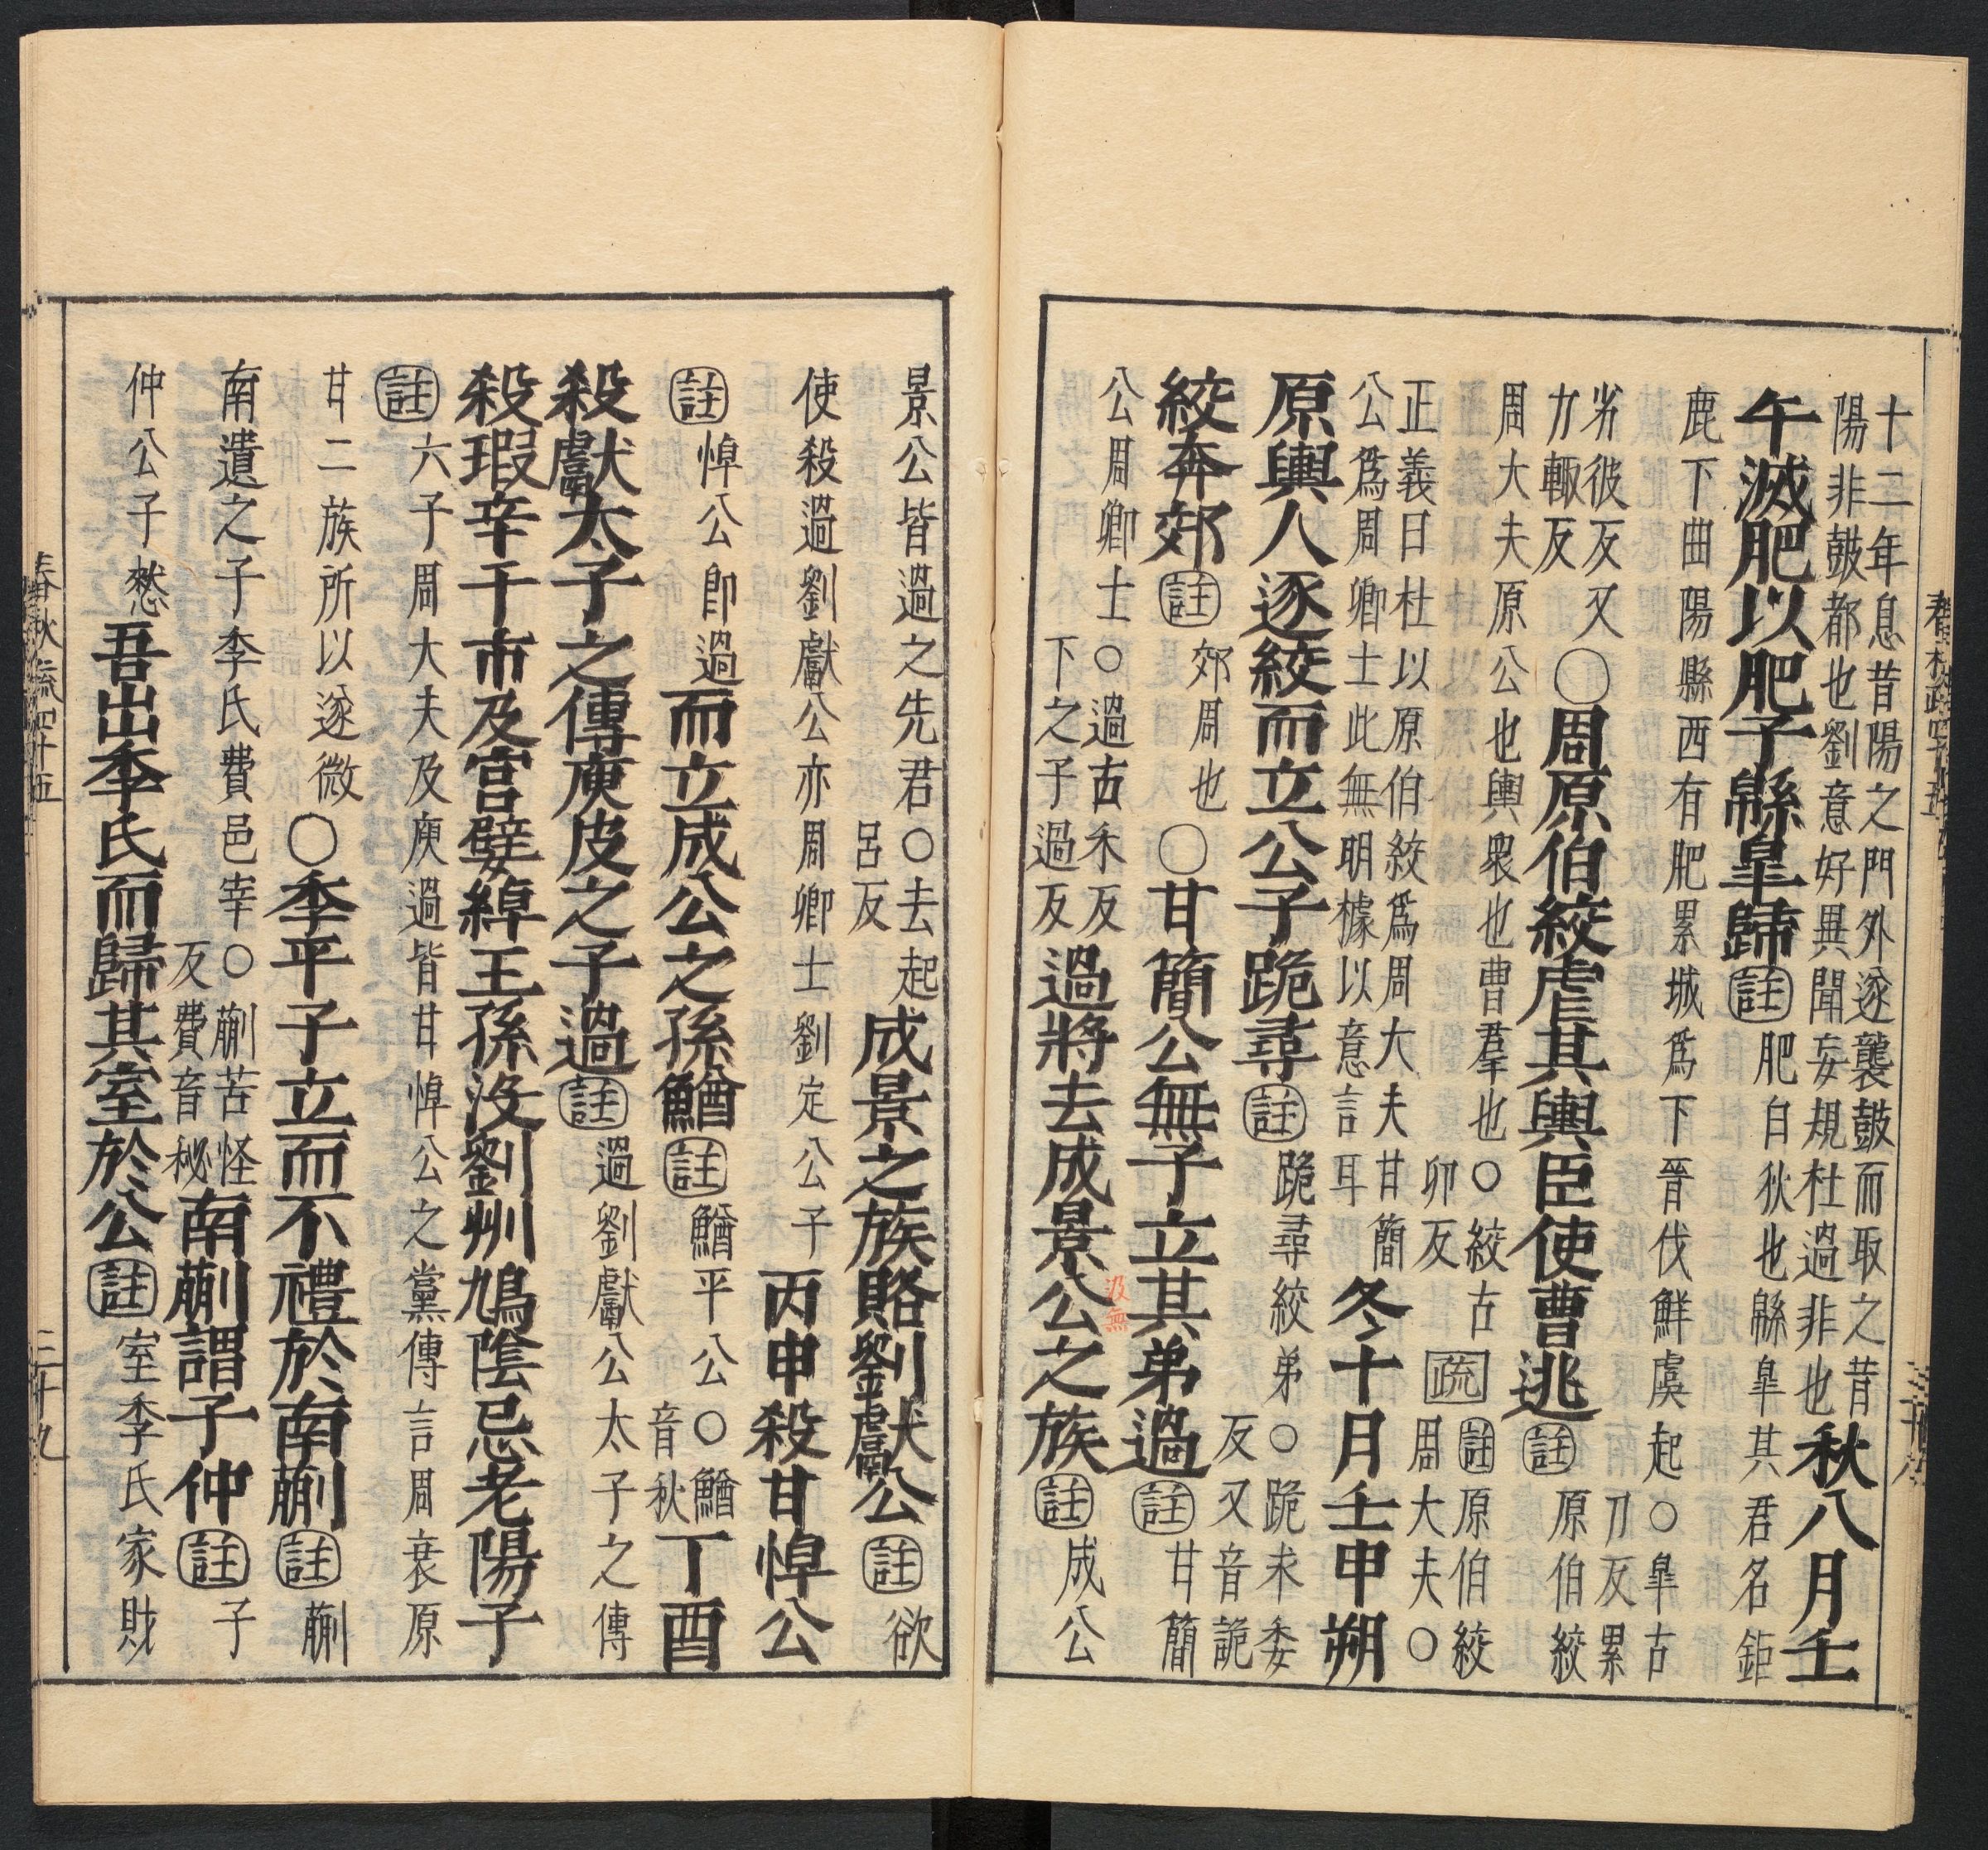 十二年息昔陽之門外遂襲鼓而取之昔
陽非鼓都也劉意好異聞妄規杜過非也
秋八月壬
午滅肥以肥子緜皐歸註肥白狄也緜皐其君名鉅
鹿下曲陽縣西有肥累城爲下晉伐鮮虞起○皐古
刀反累
劣彼反又
力輒反
○周原伯絞虐其輿臣使曹逃註原伯絞
周大夫原公也輿衆也曹羣也○絞古
卯反
疏
註原伯絞
周大夫○
正義曰杜以原伯絞爲周大夫甘簡
公爲周卿士此無明據以意言耳
冬十月壬申朔
原輿人逐絞而立公子跪尋註跪尋絞弟○跪未委
反又音詭
絞奔郊註郊周也○甘簡公無子立其弟過註甘簡
公周卿士○過古禾反
下之子過反
過將去成景公之族註成公
汲無
景公皆過之先君○去起
呂反
成景之族賂劉獻公註欲
使殺過劉獻公亦周卿士劉定公子丙申殺甘悼公
註悼公即過而立成公之孫鰌註鰌平公○鰌
音秋
丁酉
殺獻太子之傅庾皮之子過註過劉獻公太子之傅
殺瑕辛于市及宮嬖綽王孫沒劉州鳩陰忌老陽子
註六子周大夫及庾過皆甘悼公之黨傳言周衰原
甘二族所以遂微○季平子立而不禮於南蒯註蒯
南遺之子季氏費邑宰○蒯苦怪
反費音秘
南蒯謂子仲註子
仲公子憖吾出季氏而歸其室於公註室季氏家財
春秋疏四十五
三十九